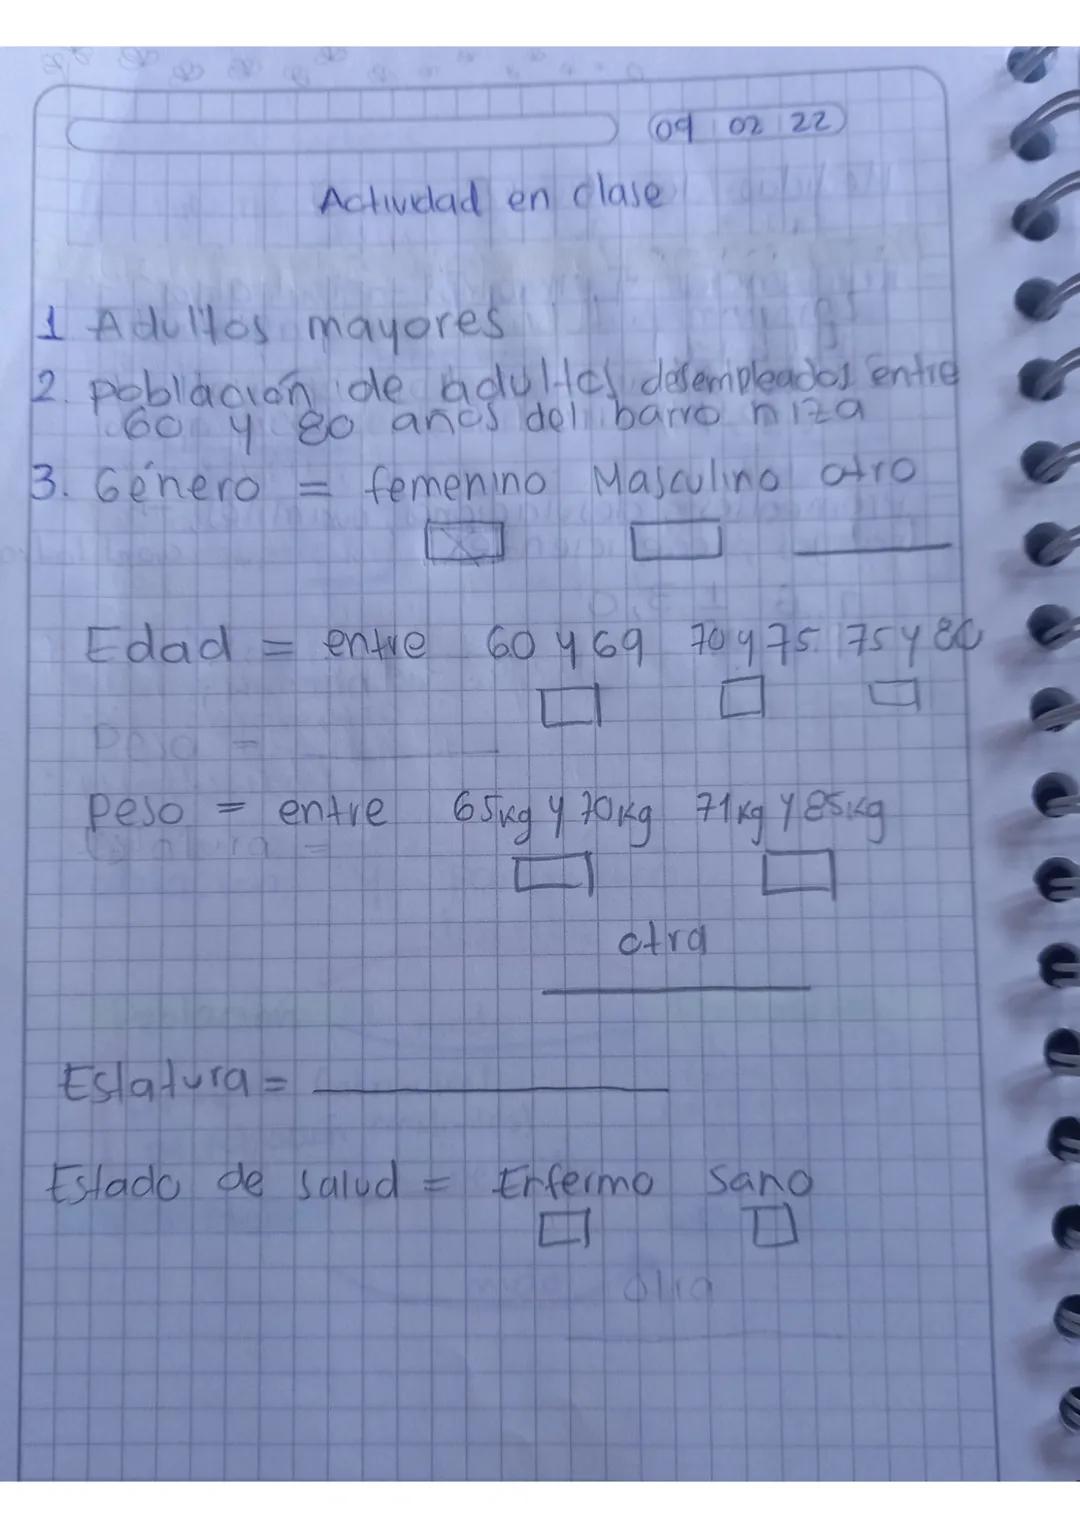 09 02 22
Actividad en clase
1 Adultos mayores
2. población de adultos desempleados entre
60 y 80 años del barro niza
3. Género = femenino Masculino otro
Edad = entre 60 y 69 70 y 75 75 y 80
Peso =
peso = entre 65kg y 70kg 71kg y 85kg
otra
Estatura =
Estado de salud = Enfermo Sano
otra